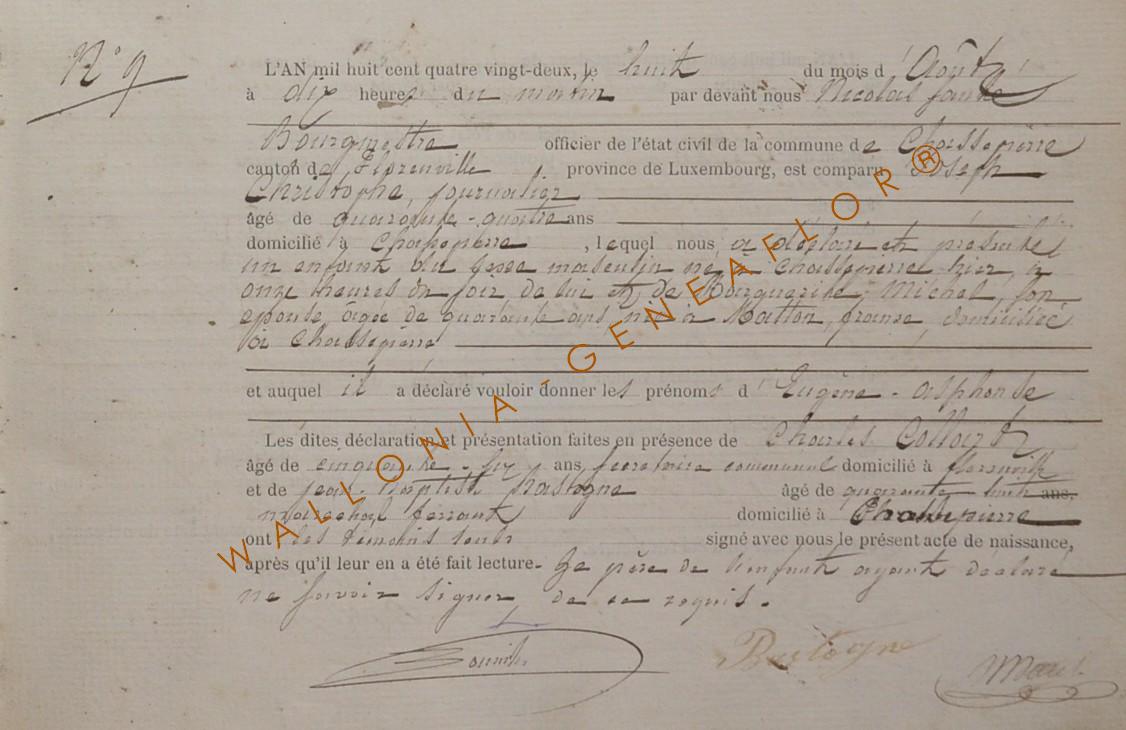 N° 9
L'AN mil huit cent quatre vingt-deux, le huit du mois d'Août
à dix heures du matin par devant nous Nicolas
Bourgmestre officier de l'état civil de la commune de Chassepierre
canton de Florenville province de Luxembourg, est comparu Joseph
Christophe, journalier
âgé de quarante-quatre ans
domicilié à Chassepierre, lequel nous a déclaré et présenté
un enfant du sexe masculin né à Chassepierre hier, à
onze heures du jour de lui et de Marguerite Michel, son
épouse, agée de quarante ans, née à Matton, france, domiciliée
à Chassepierre
et auquel il a déclaré vouloir donner les prénoms d'Eugène-Alphonse
Les dites déclaration et présentation faites en présence de Charles Collard
âgé de cinquante-six ans, secrétaire communal domicilié à florenville
et de Jean-Baptist Bastogne âgé de quarante huit ans,
maréchal ferrant domicilié à Chassepierre
ont les témoins signé avec nous le présent acte de naissance,
après qu'il leur en a été fait lecture. Le père de l'enfant ayant déclaré
ne savoir signer de ce requis.
Bastogne
WALLONIA-GENEAFLOR®